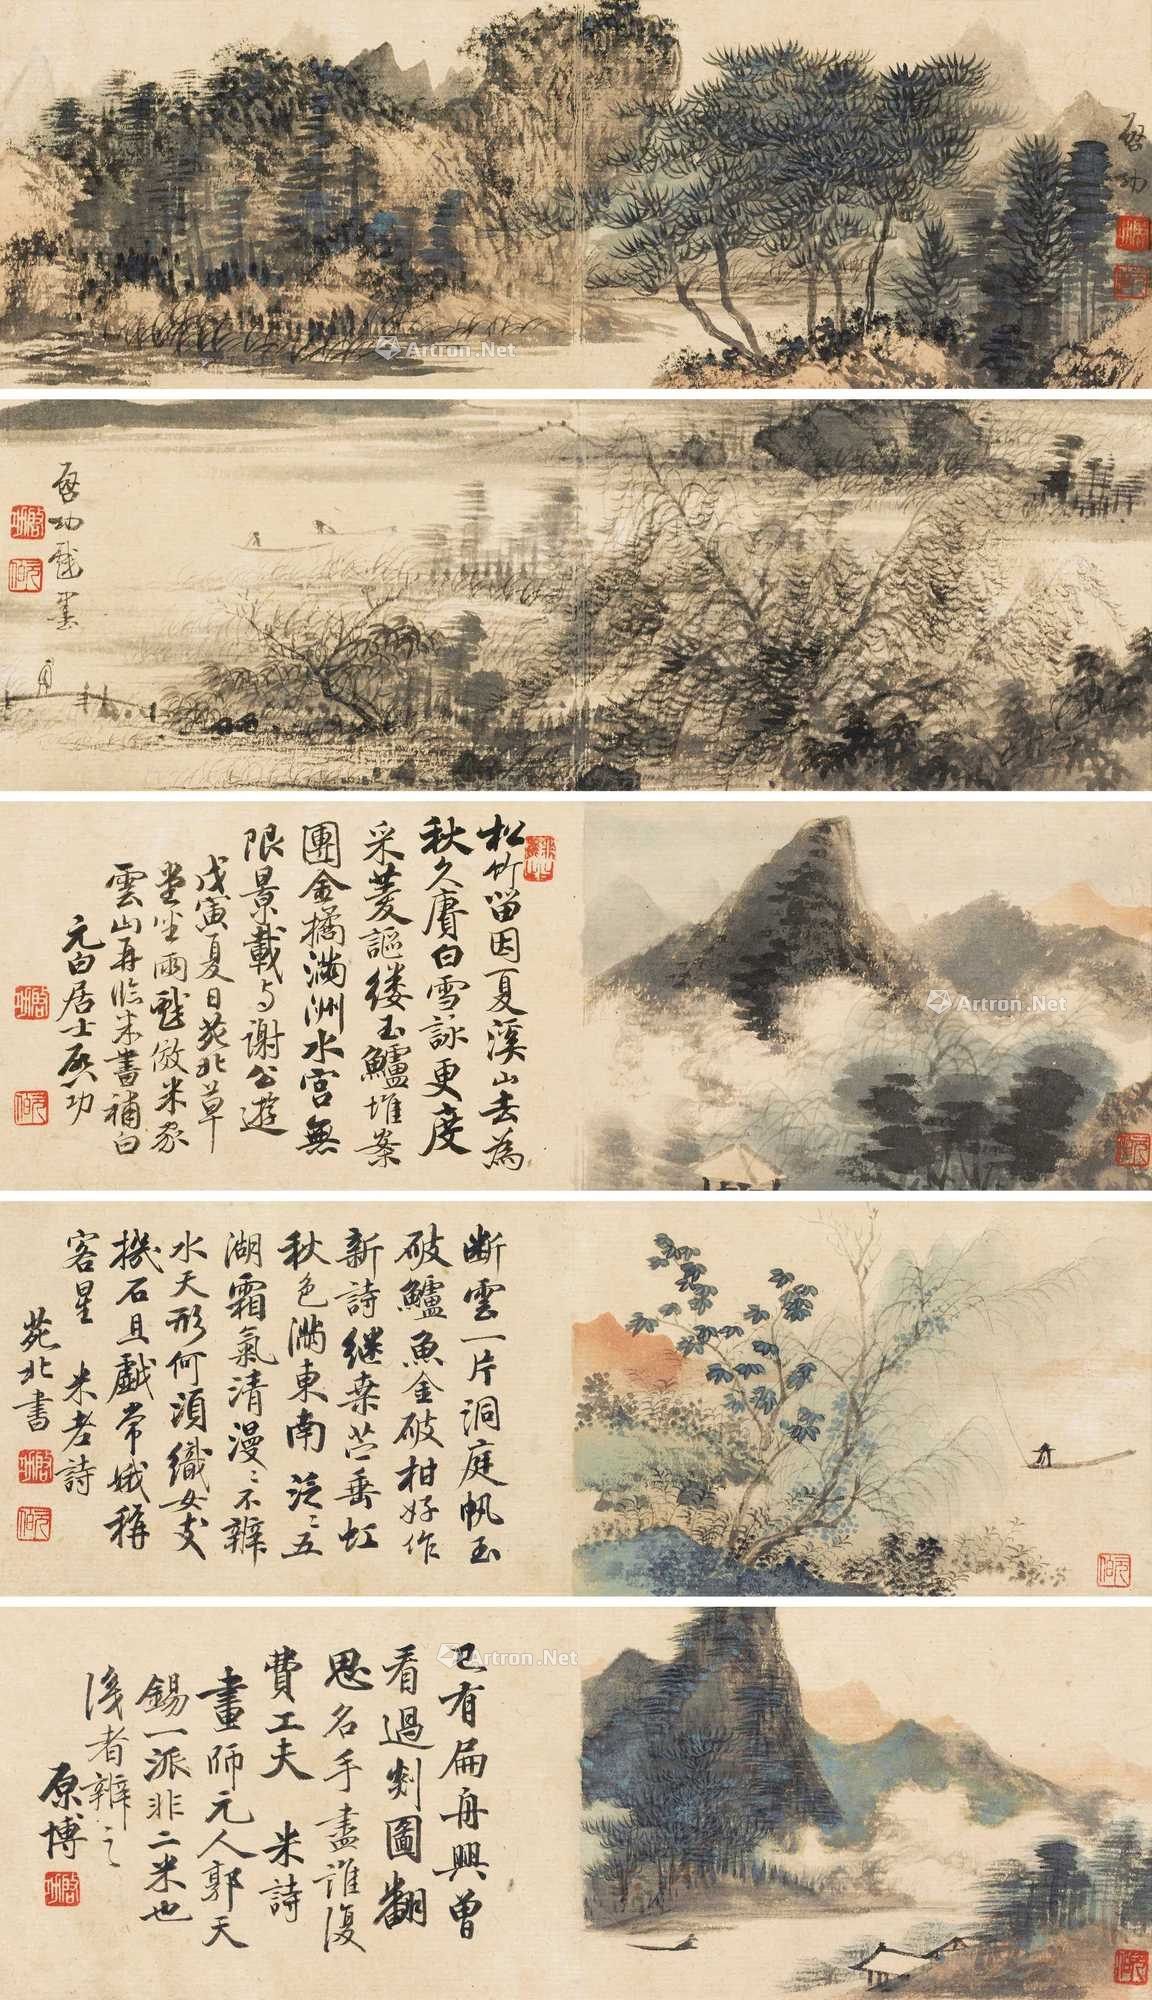 啓功
Artron.Net
啓功戲墨
松竹留因夏溪山去為
秋久賡白雪詠更度
采菱謳縷玉鱸堆案
團金橘滿洲水宮無
限景載与謝公遊
戊寅夏日苑北草
堂坐雨戲倣米家
雲山再臨米書補白
元白居士啓功
Artron.Net
斷雲一片洞庭帆玉
破鱸魚金破柑好作
新詩继桒苎垂虹
秋色滿東南泛〻五
湖霜氣清漫〻不辨
水天形何須織女支
機石且戲常娥稱
客星 米老詩
苑北書
已有扁舟興曾
看過剡圖翻
思名手盡誰復
費工夫 米詩
畫師元人郭天
錫一派非二米也
後者辨之
原博
Artron.Net